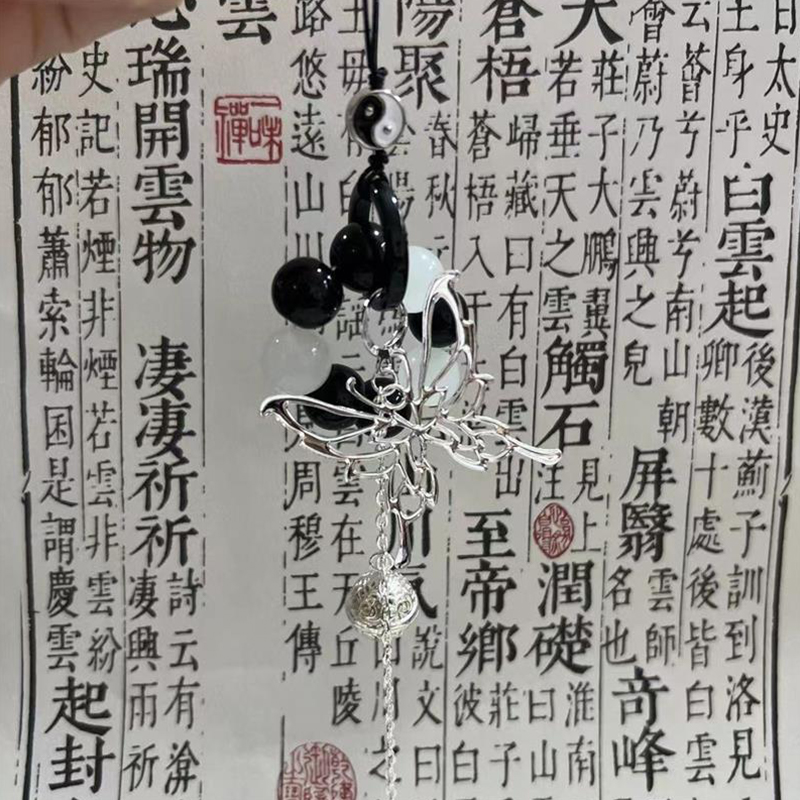 太史
王身乎
白雲起
後漢薊子訓到洛見
卿數十處後皆白雲
云薈兮蔚兮南山朝
薈蔚乃雲興之皃
屏翳
雲師
名也
奇峰
大
莊子大鵬翼
若垂天之雲
觸石
見上
注
潤礎
淮南
曰山
蒼梧
歸藏曰有白雲出
蒼梧入于
至帝鄉
莊子
彼白
陽聚
春秋
氣
說文曰
之
王毋
雲在天丘陵
路悠遠山川
周穆王傳
雲
一味禪
瑞開雲物
淒淒祈祈
詩云有渰
淒興雨祈
史記若煙非煙若雲非雲紛
紛郁郁蕭索輪囷是謂慶雲
起封